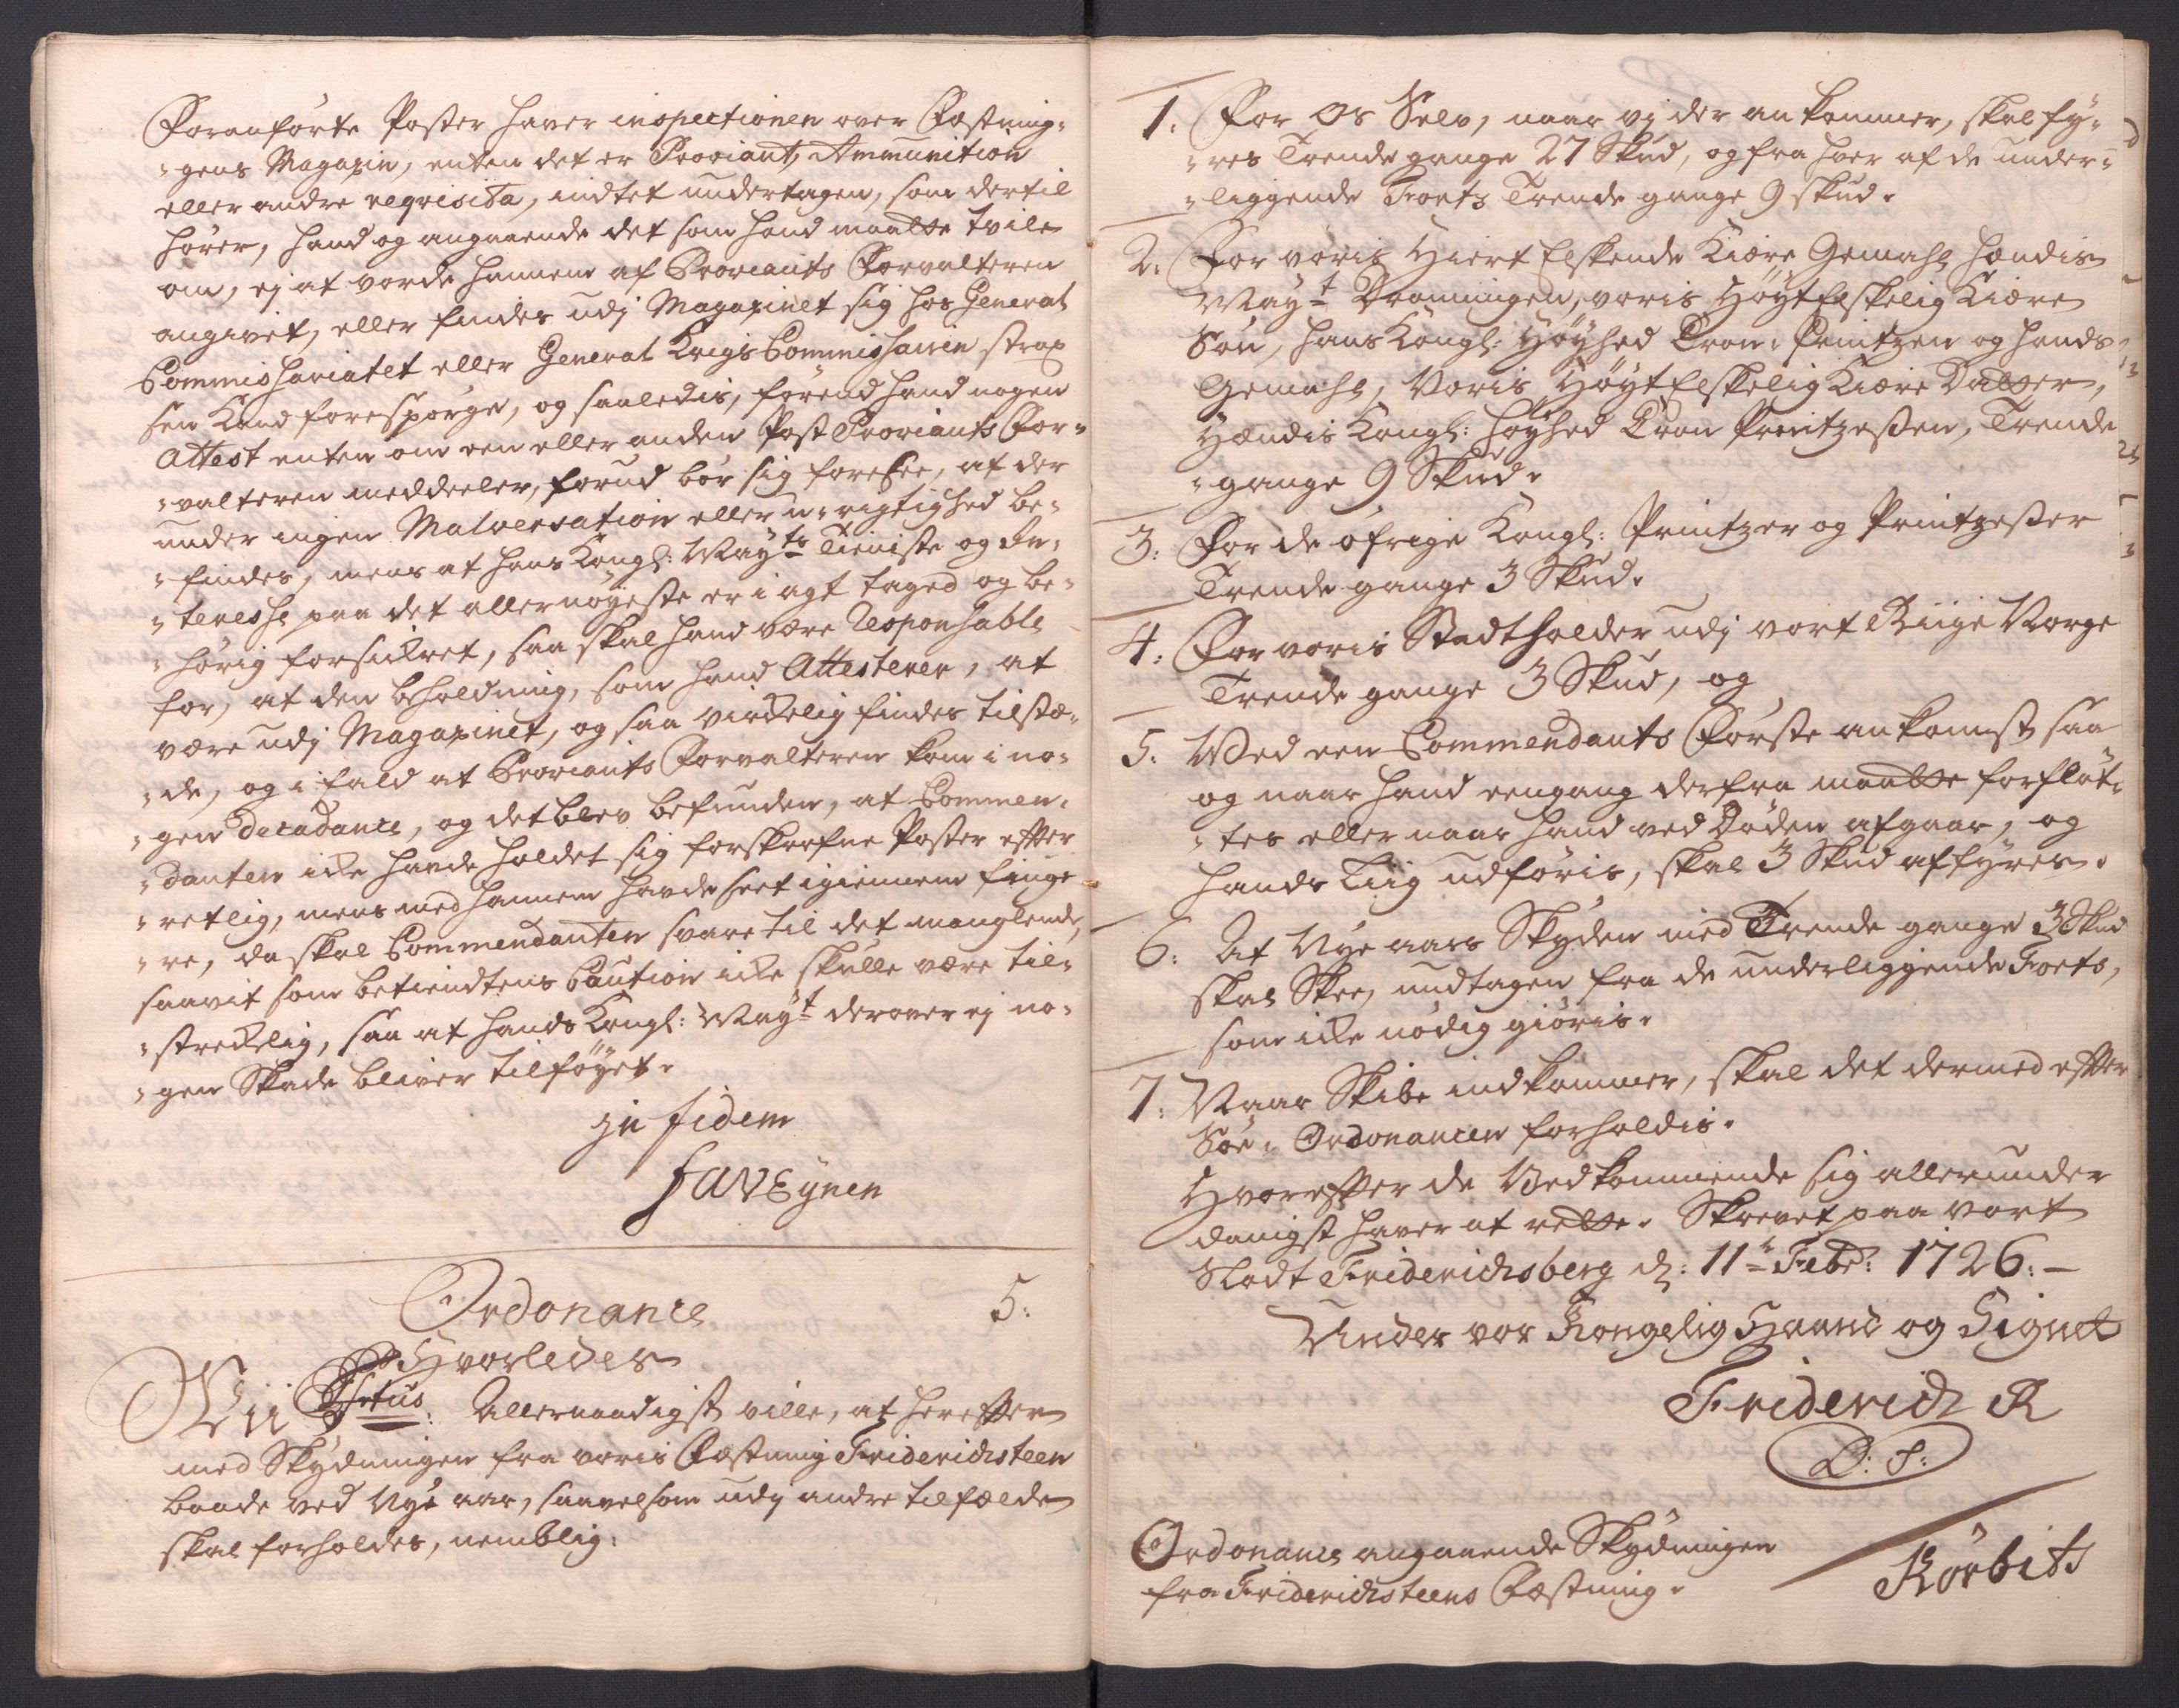 Foranförte Poster haver inspectionen over Fæstning-
-gens Magazin, enten det er Proviant, Ammunition
eller andre reqvisita, indtet undertagen, som dertil
hörer, hand og angaaende det som hand maatte tvile
om, ej at vorde hannem af Proviants Forvalteren
angivet, eller findes udj Magazinet sig hos General
Commissariatet eller General Krigs Commissairen strax
kand forespörge, og saaledis, förend hand nogen
Attest enten om een eller anden Post Proviants For-
-valteren meddeeler, forud bör sig foresee, at der
under ingen Malversation eller u-rigtighed be-
-findes, mens at hans Kongl: Mayts Tieniste og In-
-teresse paa det allernöyeste er i agt taged og be-
-hörig forsickret, saa skal hand være Responsable
for, at den beholdning, som hand Attesterer, at
være udj Magazinet, og saa virckelig findes tilstæ-
-de, og i fald at Proviants Forvalteren kom i no-
-gen decadance, og det blev befunden, at Commen-
-danten icke havde holdet sig forskrefne Poster effter
-retlig, mens med hannem havde seet igiennem finge-
-re, da skal Commendanten svare til det manglende,
saavit som betiendtens Caution icke skulle være til-
-streckelig, saa at hands Kongl: Mayt derover ej no-
-gen Skade bliver tilföyet.
in fidem
FAVEÿnen
Ordonance 5:
Hvorledes
Wii Tetus: Allernaadigst ville, at hereffter
med Skydningen fra voris Fæstning Friderichsteen
baade ved Nye aar, saavelsom udj andre tilfælde
skal forholdes, nemblig:
1: For os Selv, naar vj der ankommer, skal fy-
-res Trende gange 27 Skud, og fra hver af de under-
-liggende Forts Trende gange 9 skud.
2: For voris Hiert Elskende Kiære Gemahl hendis
Mayt Dronningen, voris Höyt Elskelig Kiære
Sön, hans Kongl: Höyhed Cron-Printzen og hands
Gemahl, Voris Höyt Elskelig Kiære Datter,
Hændis Kongl: Höyhed Cron Printzeßen, Trende
-gange 9 Skud.
3: For de öfrige Kongl: Printzer og Printzeßer
Trende gange 3 Skud.
4: For voris Stadtholder udj vort Riige Norge
Trende gange 3 Skud, og
5: Ved een Commendants Förste ankomst saa
og naar hand eengang derfra maatte forflöt-
-tes eller naar hand ved Döden afgaar, og
hands Liig udföris, skal 3 Skud affyres.
6: At Nye aars Skyden med Trende gange 3 Skud
skal Skee, undtagen fra de underliggende Forts,
som icke nödig giöris.
7: Naar Skibe indkommer, skal det dermed effter
Söe-Ordonancen forholdis.
Hvoreffter de Vedkommende sig allerunder
danigst haver at rette. Skrevet paa vort
Slodt Friderichsberg d: 11te Febr: 1726:-
Under vor Kongelig Haand og Signet
Friderich R
L: S:
Ordonance angaaende Skydningen
fra Friderichsteens Fæstning.
Körbitz